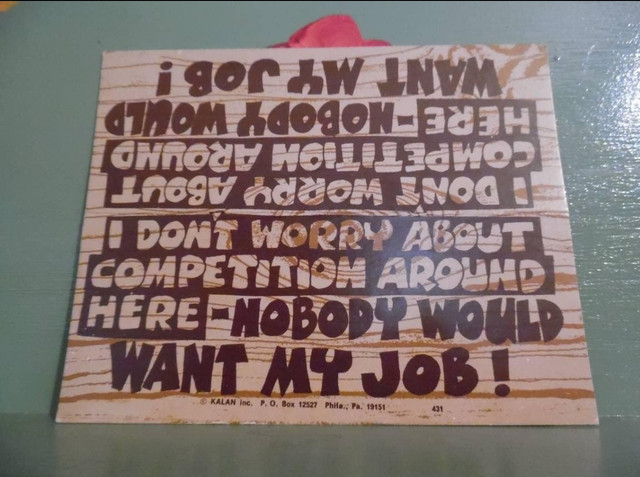 WANT MY JOB!
HERE-NOBODY WOULD
COMPETITION AROUND
I DON'T WORRY ABOUT
I DON'T WORRY ABOUT
COMPETITION AROUND
HERE-NOBODY WOULD
WANT MY JOB!
© KALAN Inc. P. O. Box 12527 Phila., Pa. 19151 431